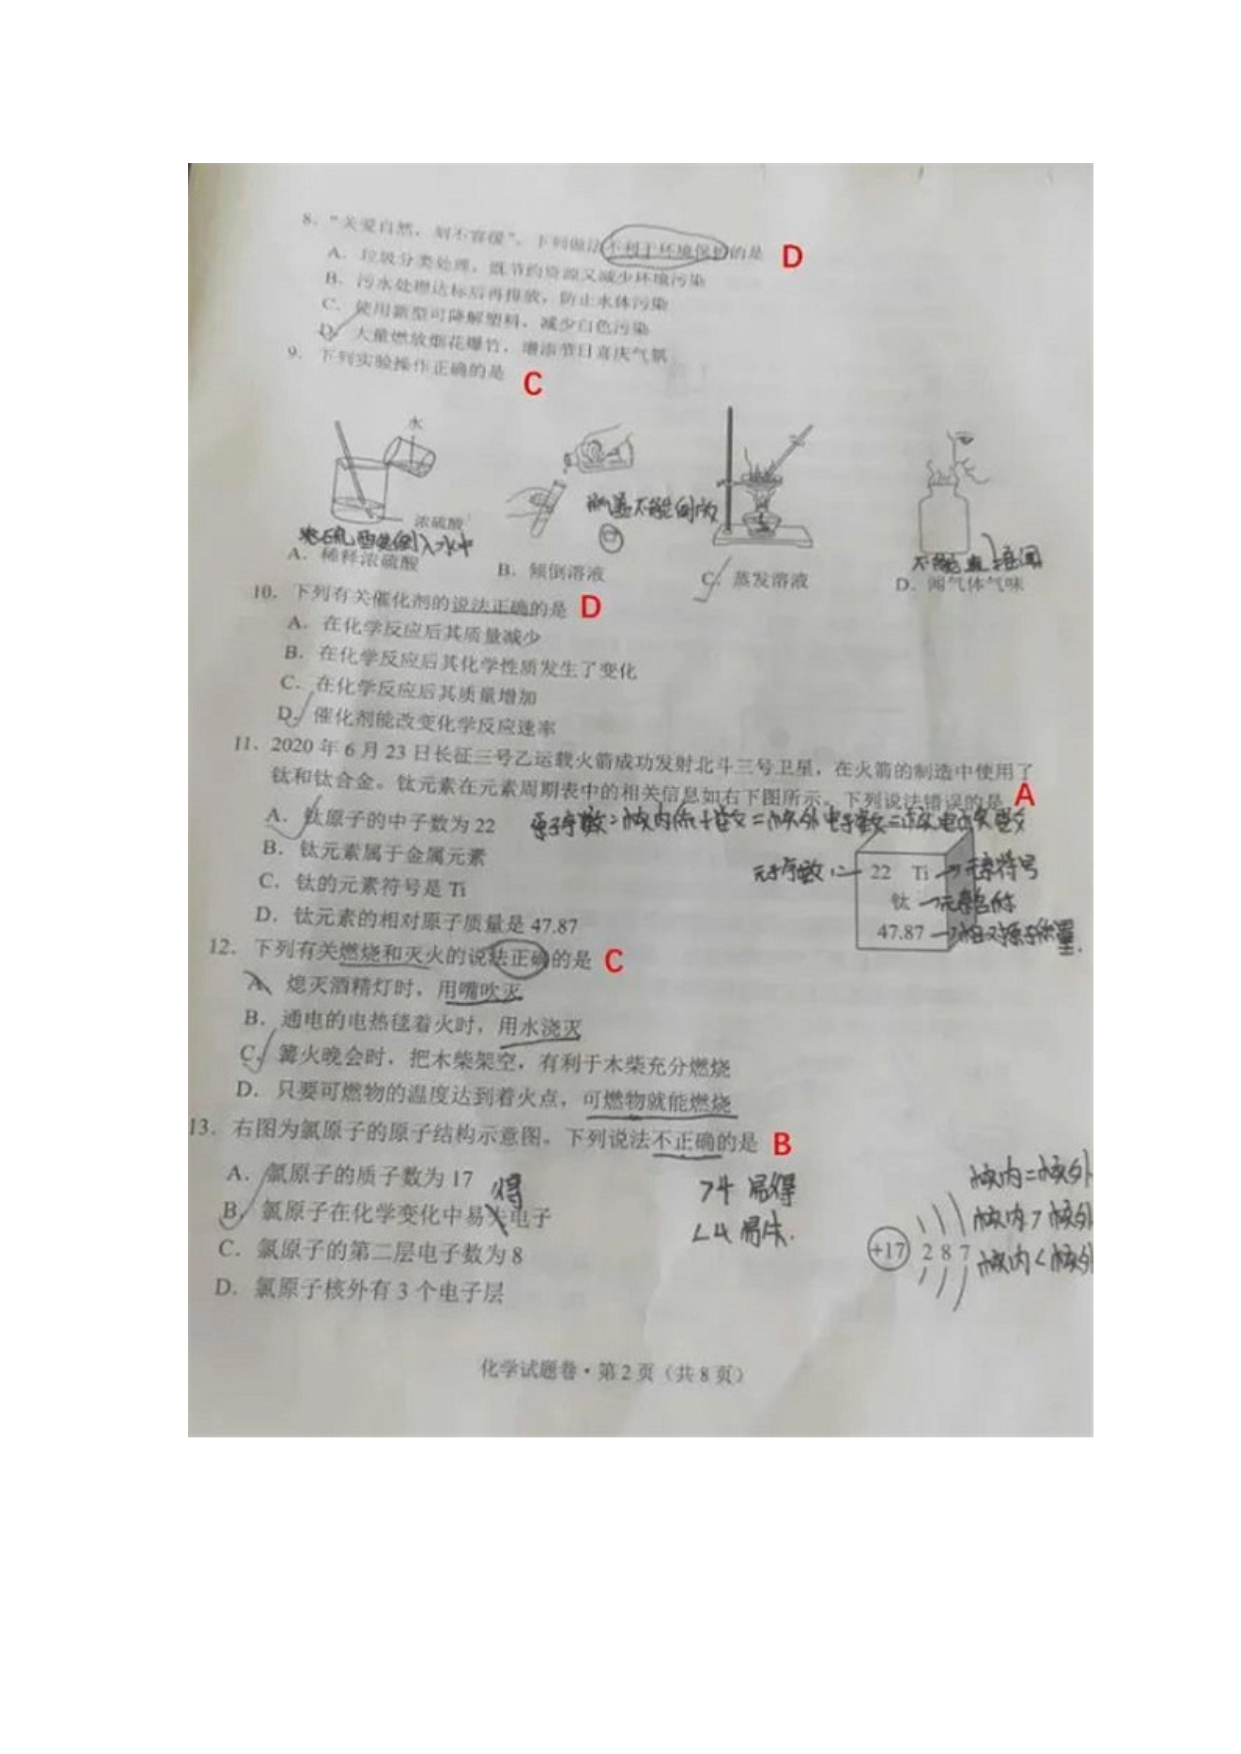 8．“关爱自然，刻不容缓”。下列做法不利于环境保护的是 D
A．垃圾分类处理，既节约资源又减少环境污染
B．污水处理达标后再排放，防止水体污染
C．使用新型可降解塑料，减少白色污染
D．大量燃放烟花爆竹，增添节日喜庆气氛
9．下列实验操作正确的是 C
水
浓硫酸
瓶盖不能倒放
不能直接闻
A．稀释浓硫酸 B．倾倒溶液 C．蒸发溶液 D．闻气体气味
10．下列有关催化剂的说法正确的是 D
A．在化学反应后其质量减少
B．在化学反应后其化学性质发生了变化
C．在化学反应后其质量增加
D．催化剂能改变化学反应速率
11．2020 年 6 月 23 日长征三号乙运载火箭成功发射北斗三号卫星，在火箭的制造中使用了
钛和钛合金。钛元素在元素周期表中的相关信息如右下图所示。下列说法错误的是 A
A．钛原子的中子数为 22
原子序数=核内质子数=核外电子数=核电荷数
B．钛元素属于金属元素
C．钛的元素符号是 Ti
D．钛元素的相对原子质量是 47.87
原子序数 22 Ti 元素符号
钛 元素名称
47.87 相对原子质量
12．下列有关燃烧和灭火的说法正确的是 C
A．熄灭酒精灯时，用嘴吹灭
B．通电的电热毯着火时，用水浇灭
C．篝火晚会时，把木柴架空，有利于木柴充分燃烧
D．只要可燃物的温度达到着火点，可燃物就能燃烧
13．右图为氯原子的原子结构示意图。下列说法不正确的是 B
A．氯原子的质子数为 17
得
B．氯原子在化学变化中易失电子
C．氯原子的第二层电子数为 8
D．氯原子核外有 3 个电子层
>4 易得
<4 易失.
核内=核外
核内>核外
核内<核外
+17 2 8 7
化学试题卷·第 2 页（共 8 页）